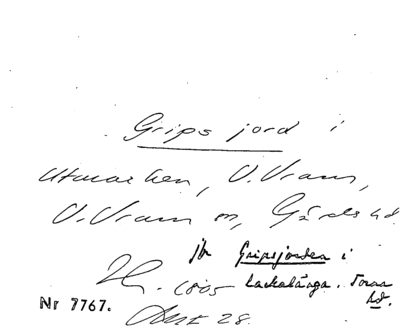 Grips jord i
utmarken, V. Vram,
V. Vram sn, Gärds hd.
Jfr Gripsjorden i
Lackalänga. Torna
hd.
Nr 7767.
28.